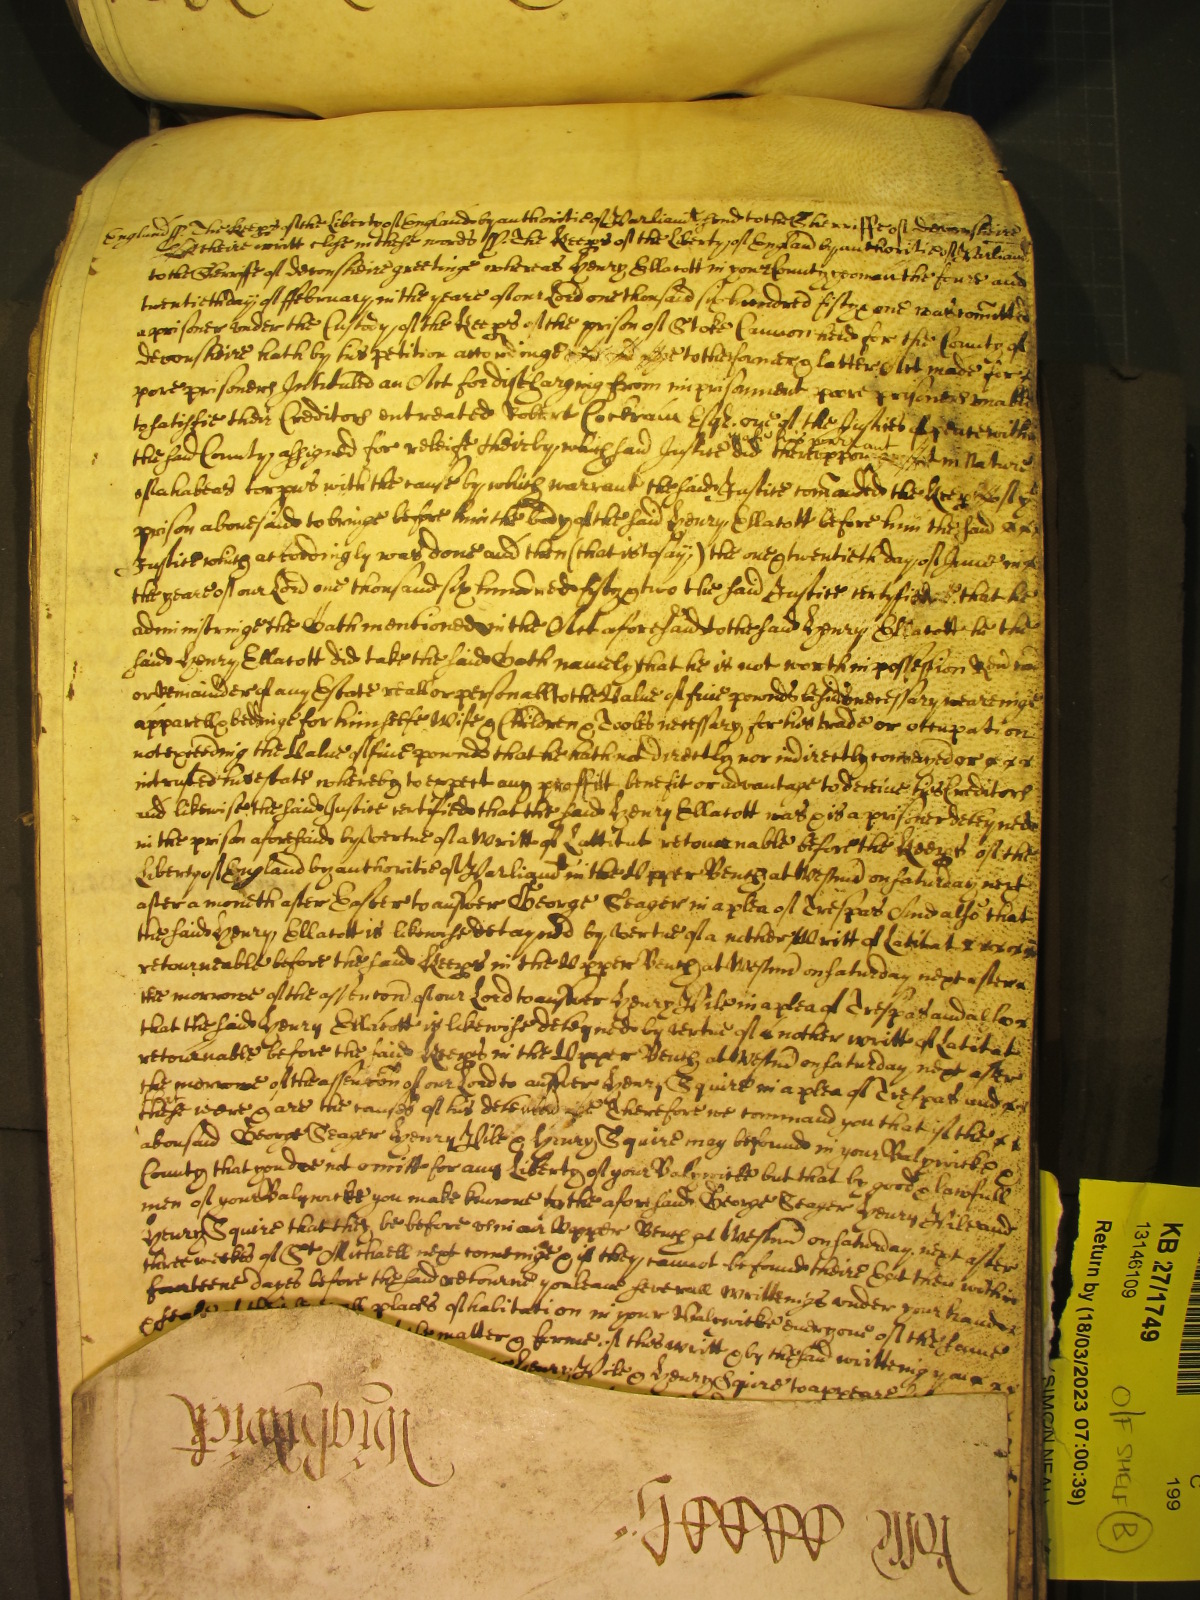 England ss The Keeps of the Liberty of England by authoritie of Parliamt send to the Sherriffe of devonsheire
theire writt close in these words ss The Keeps of the Liberty of England by authoritie of Parliamt
to the Sherriffe of devonsheire greetinge whereas Henry Ellacott in your County yeoman the foure and
twentieth day of ffebruary in the yeare of our Lord one thousand six hundred fifty & one was comitted
a prisoner under the Custody of the Keeps of the prison of Stoke Cannon held for the County of
devonsheire hath by his petition accordinge to the former & latter Act made for
pore prisoners Intituled an Act for discharging from imprisonment poore prisoners unable
to satisfie their Creditors entreated Robert Cockram Esqr. one of the Justices of peace within
the said County assigned for releife thereby which said Justice did thereuppon make his warrant in Nature
of a habeas corpus with the cause by which warrant the said Justice comanded the Keeps of ye
prison abovesaid to bringe before him the body of the said Henry Ellacott before him the said
Justice which accordingly was done and then (that is to say) the one & twentieth day of June in
the yeare of our Lord one thousand six hundred fifty & two the said Justice certified that he
administringe the Oath mentioned in the Act aforesaid to the said Henry Ellacott he the
said Henry Ellacott did take the said Oath namely that he is not worth in possession
or remainder of any Estate reall or personall to the Value of five pounds besides necessary weareinge
apparell & beddinge for himselfe Wife & Children & Tooles necessary for his trade or occupation
not exceeding the Value of five pounds that he hath not directly nor indirectly conveyed or
intrusted his estate whereby to expect any proffitt benefit or advantage to deceive his Creditors
and likewise the said Justice certified that the said Henry Ellacott was & is a prisoner deteyned
in the prison aforesaid by vertue of a Writt of Lattitat retournable before the Keeps of the
Liberty of England by authoritie of Parliamt in the Upper Bench at Westmr on Saturday next
after a moneth after Easter to answer George Seager in a plea of Trespas And also that
the said Henry Ellacott is likewise detayned by vertue of a nother Writt of Latitat
retourneable before the said Keeps in the Upper Bench at Westmr on Saturday next after
the morrowe of the assencon of our Lord to answer Henry Pile in a plea of Trespas and allso
that the said Henry Ellacott is likewise deteyned by vertue of another writt of Latitat
retournable before the said Keeps in the Upper Bench at Westmr on Saturday next after
the morrowe of the assencon of our Lord to answer Henry Squire in a plea of Trespas and
these were & are the causes of his Therefore we command you that if the
abovsaid George Seager Henry Pile & Henry Squire may be found in your Balywicke
County that you doe not omitt for any Liberty of your Balywicke but that by good & lawfull
men of your Balywicke you make knowne to the aforesaid George Seager Henry Pile and
Henry Squire that they be before us in our Upper Bench at Westmr on Saturday next after
three weekes of St Michaell next comeinge & if they cannot be found theire yet then within
fourteene dayes before the said retourne you leave severall writteings under your hand
& seale places of habitation in your Balywicke every one of the same
matter & forme of this writt & by the said writteing you
Henry Pile & Henry Squire to appeare
Wightwick
Rolle
KB 27/1749
13146109
Return by (18/03/2023 07:00:39)
SIMON NEAL
C
199
O/F SHELF B